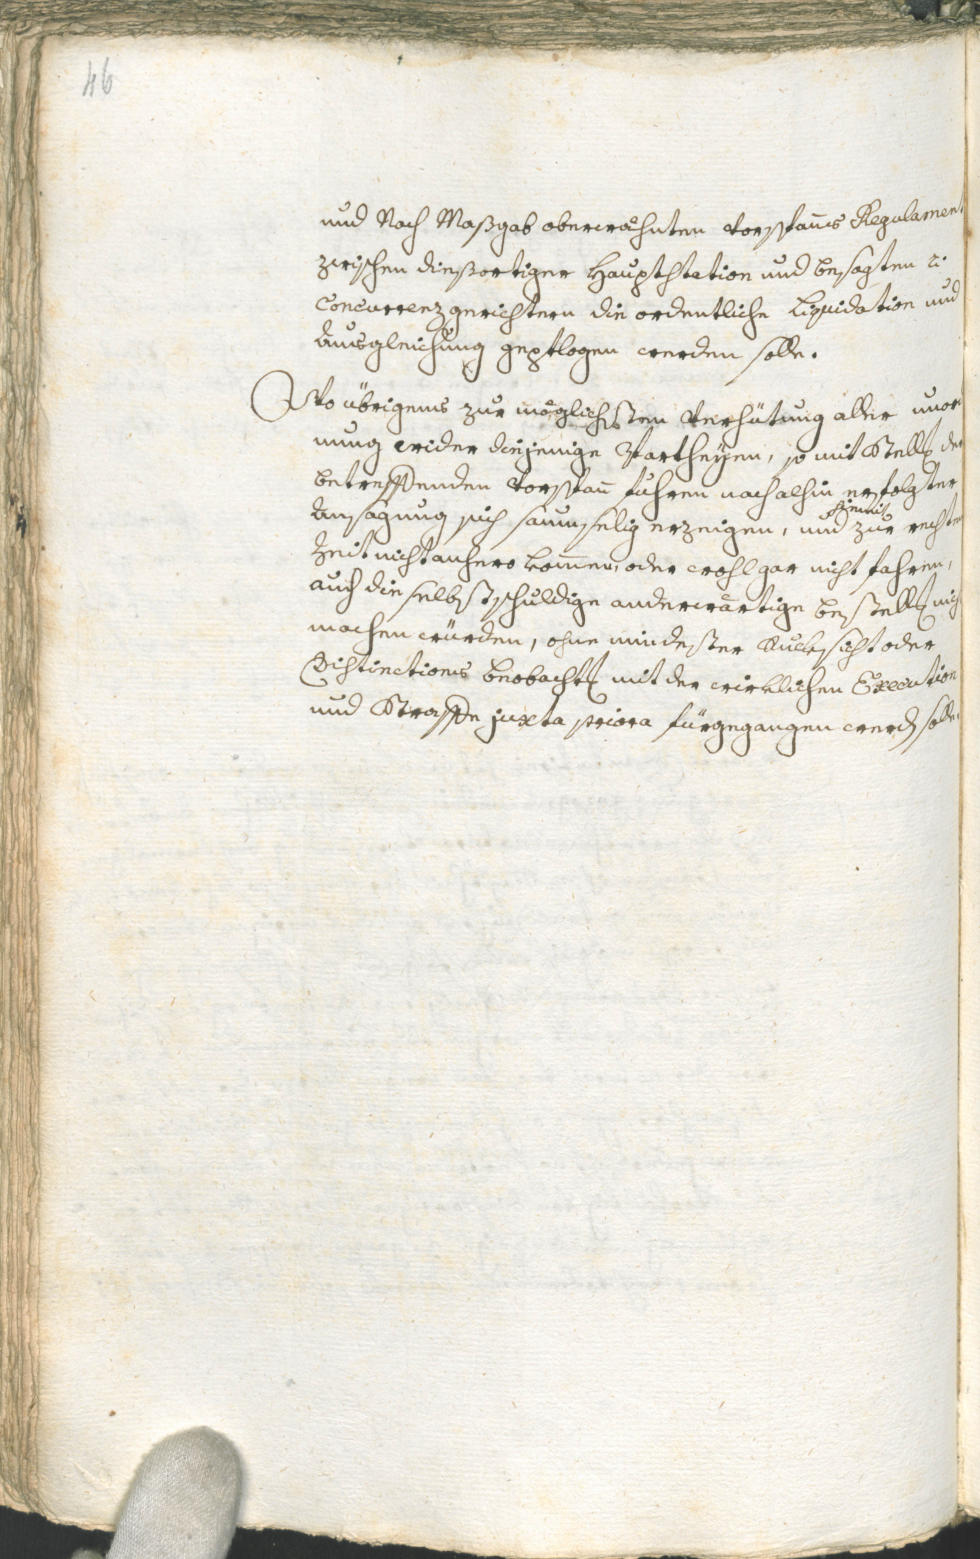 46
und Nach Maßgab obererwähnten Vorspanns Regulament
zwischen dießortiger Hauptstation und besagten 2.
Concurrenzgerichtern die ordentliche Liquidation und
Ausgleichung gepflogen werden solle.
Wo übrigens zur möglichsten Verhütung aller unor
nung wider diejenige Partheyen, so mit Stell der
betreffenden Vorspann fuhren nach alhin erfolgter
Ansagung sich saumselig erzeigen, und hiemit zur rechten
Zeit nicht anhero kommen, oder wohl gar nicht fahren,
auch die selbst schuldige anderwärtige bestell nich
machen würden, ohne mindester Rucksicht oder
Distinctions beobacht mit der wirklichen Execution
und Straffe juxta priora fürgegangen werd solle.